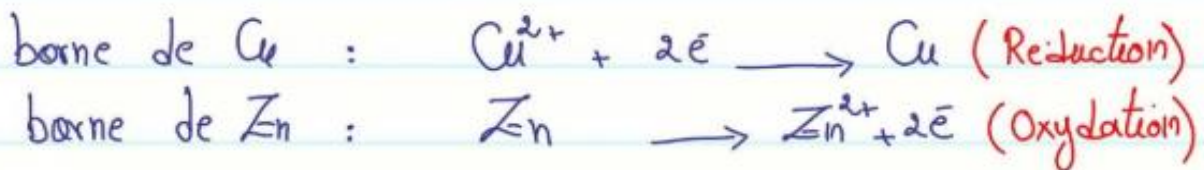 borne de Cu : Cu²⁺ + 2e⁻ → Cu (Réduction)
borne de Zn : Zn → Zn²⁺ + 2e⁻ (Oxydation)